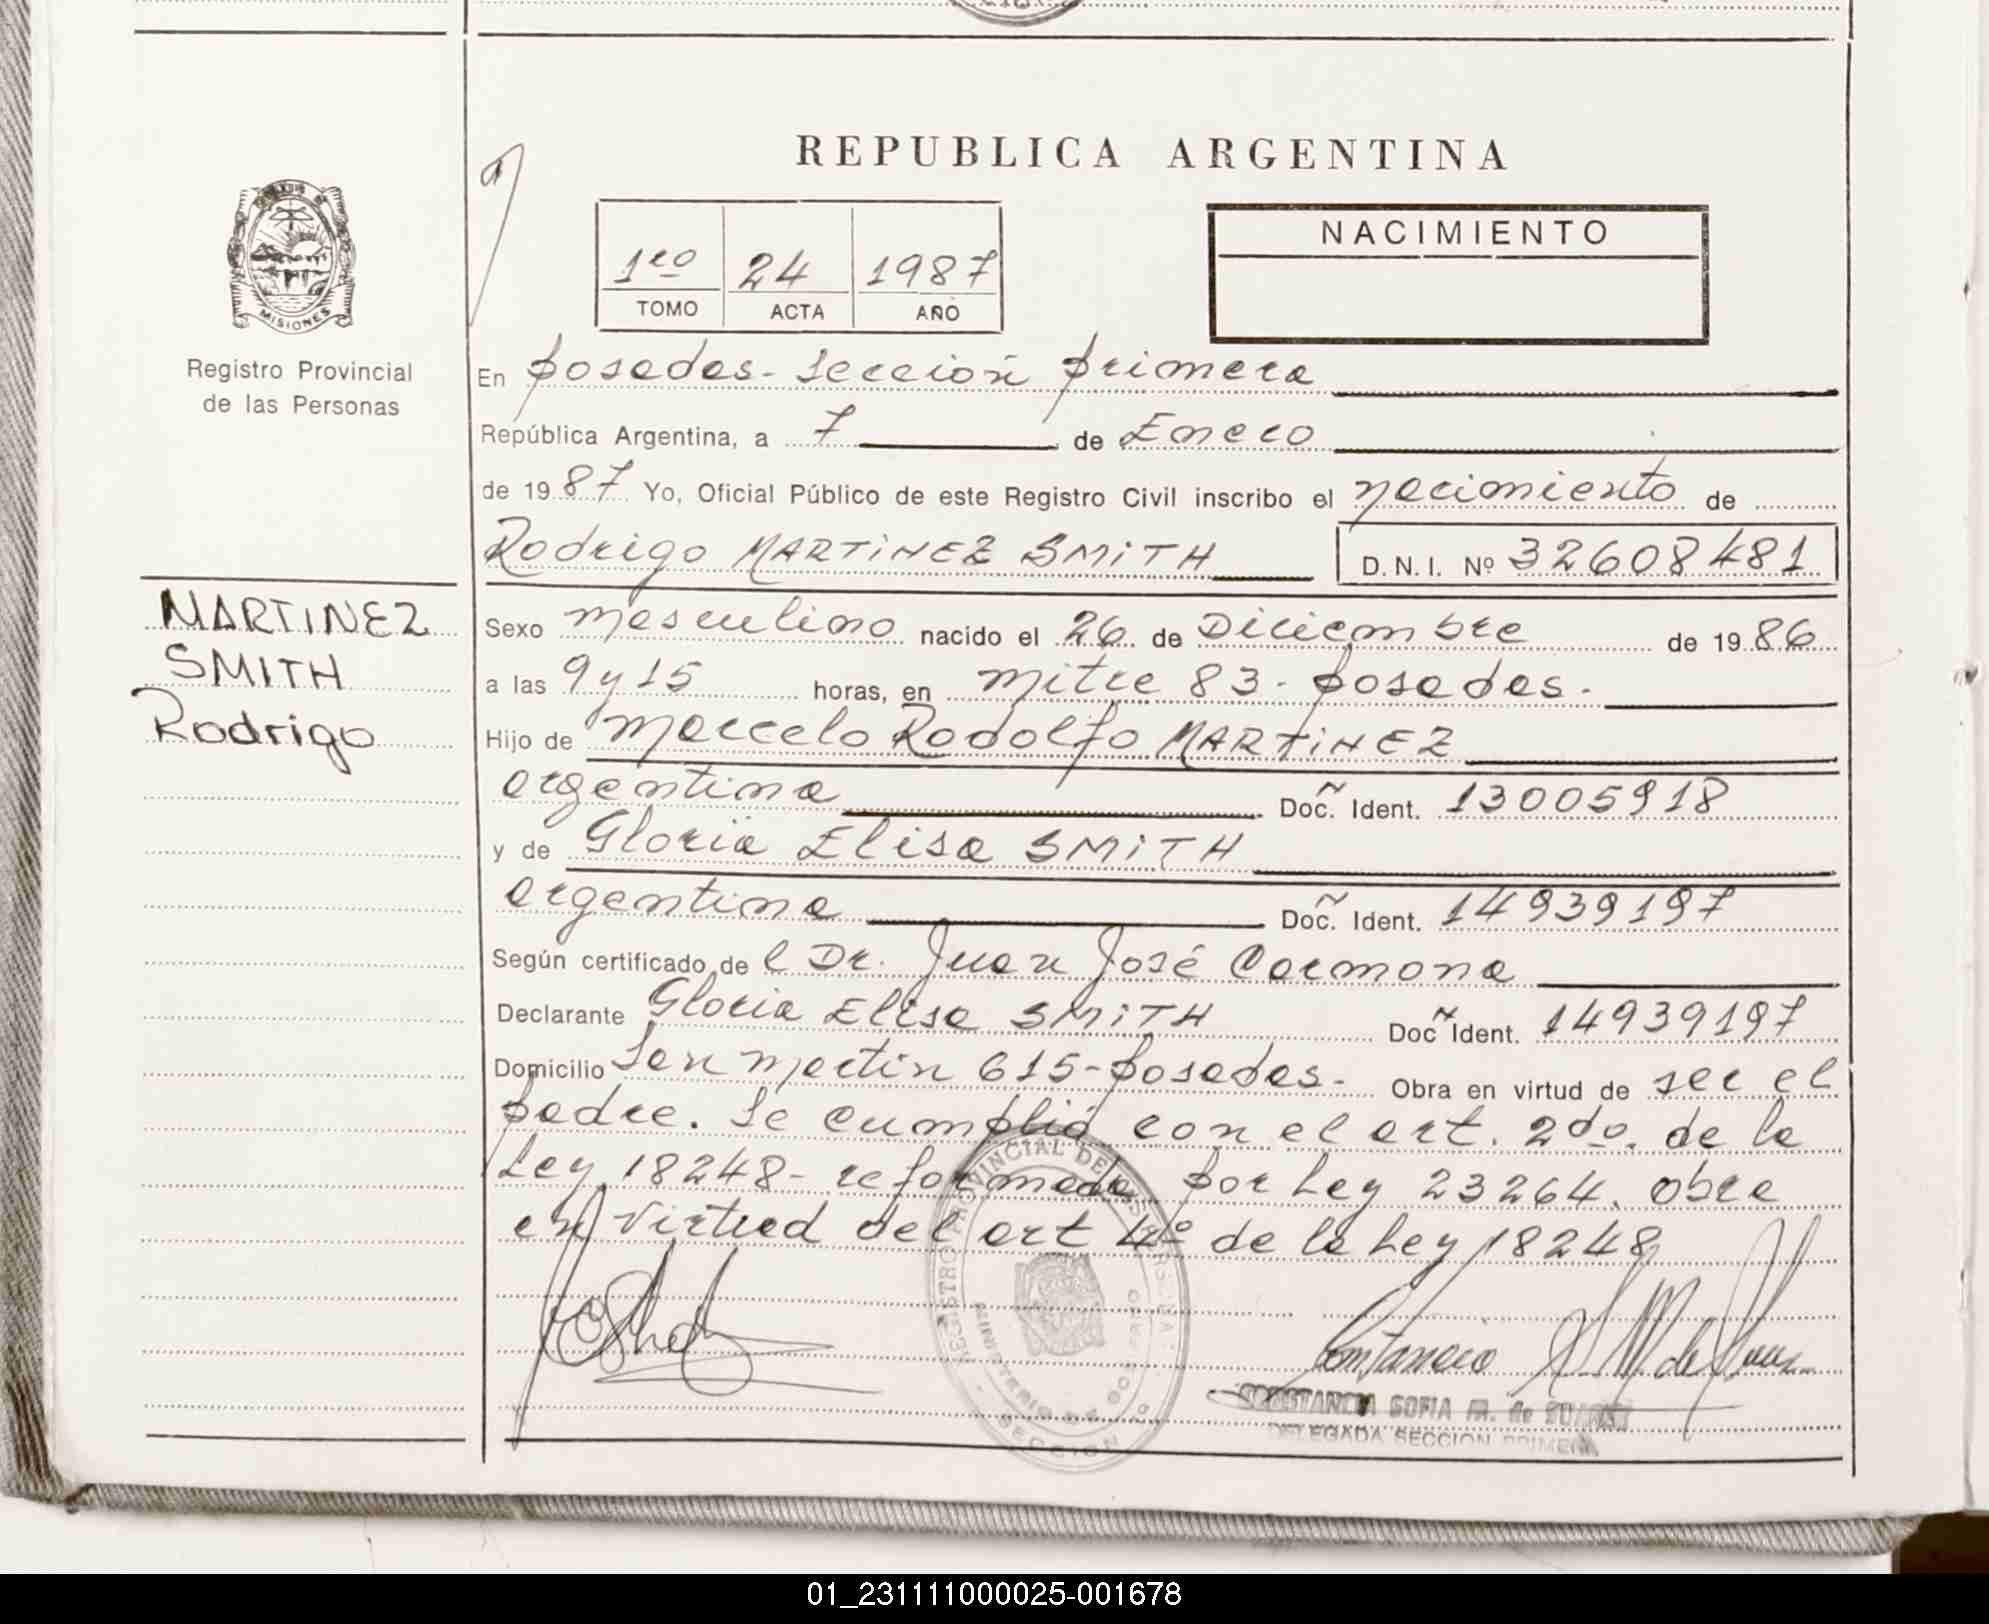 REPUBLICA ARGENTINA
1ro 24 1987
TOMO ACTA AÑO
NACIMIENTO
MISIONES
Registro Provincial
de las Personas
En Posadas - Sección primera
República Argentina, a 7 de Enero
de 1987 Yo, Oficial Público de este Registro Civil inscribo el nacimiento de
Rodrigo MARTiNEZ SMiTH D.N.I. Nº 32608481
MARTINEZ
SMITH
Rodrigo
Sexo masculino nacido el 26 de Diciembre de 1986
a las 9 y 15 horas, en mitre 83 - Posadas.
Hijo de Marcelo Rodolfo MARTiNEZ
argentina Doc. Ident. 13005918
y de Gloria Elisa SMiTH
argentina Doc. Ident. 14939197
Según certificado de l Dr. Juan José Carmona
Declarante Gloria Elisa SMiTH Doc Ident. 14939197
Domicilio San Martin 615 - Posadas - Obra en virtud de ser el
padre. Se cumplió con el art. 2do. de la
Ley 18248 - reformada por Ley 23264. Obra
en virtud del art 4º de la Ley 18248
REGISTRO PROVINCIAL DE LAS PERSONAS
MINISTERIO DE GOBIERNO
SECCION
CONSTANCIA SOFIA M. de SUAREZ
DELEGADA SECCION PRIMERA
01_231111000025-001678